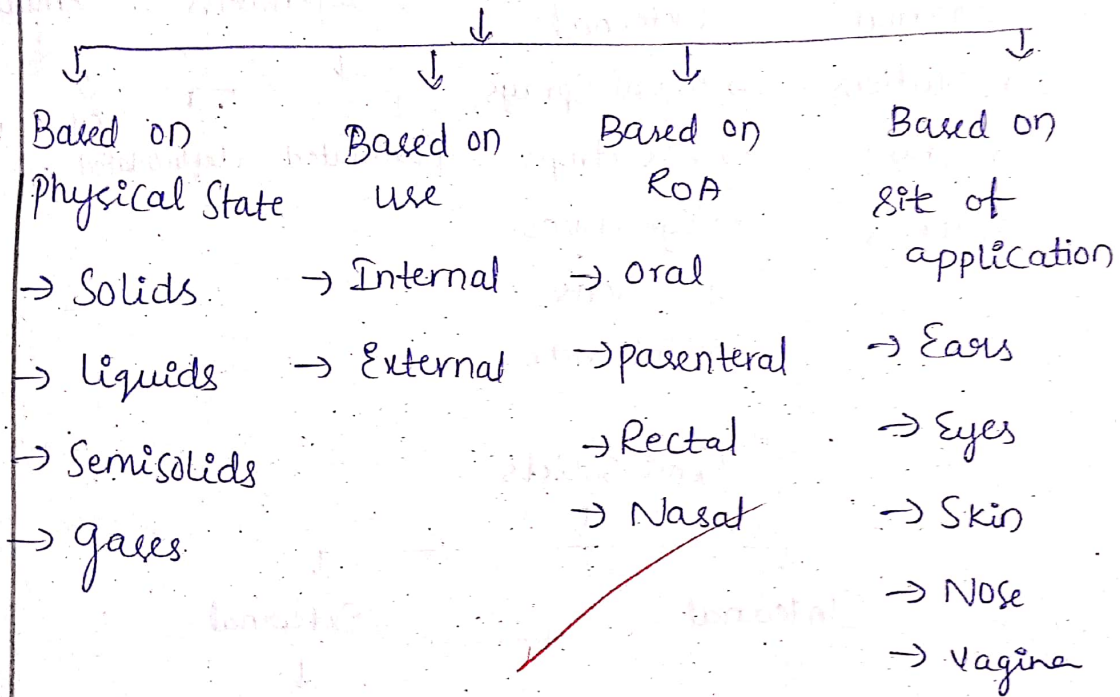 Based on
Physical State
→ Solids.
→ liquids
→ Semisolids
→ gases.
Based on
use
→ Internal
→ External
Based on
ROA
→ Oral
→ parenteral
→ Rectal
→ Nasal
Based on
site of
application
→ Ears
→ Eyes
→ Skin
→ Nose
→ Vagina